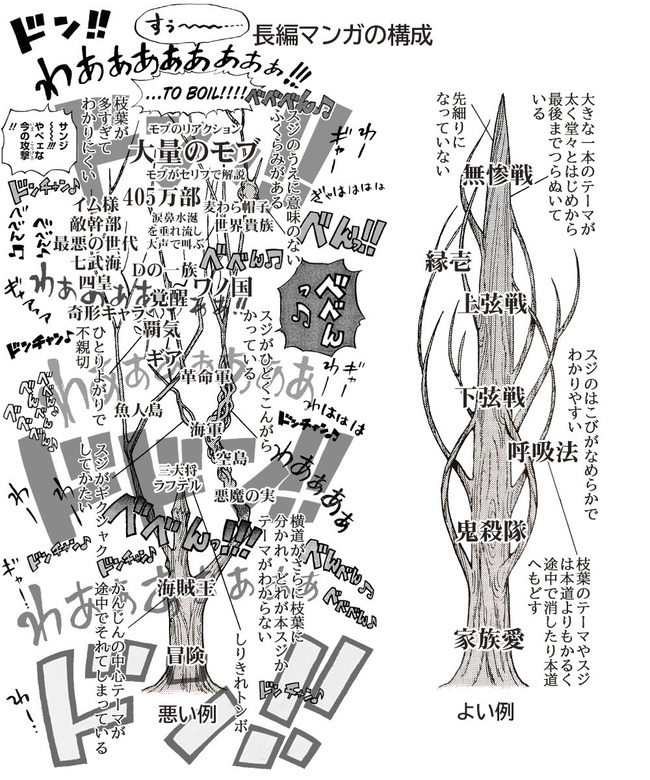 長編マンガの構成
ドン!!
すぅ〜〜〜……
わあああああああぁぁ!!!
...TO BOIL!!!!
べべべん♪
サンジ
〜〜!!!
やべェな
今の攻撃
!!
枝葉が
多すぎて
わかりにくい
スジのうえに意味のない
ふくらみがある
モブのリアクション
大量のモブ
モブがセリフで解説
405万部
涙鼻水涎
を垂れ流し
大声で叫ぶ
麦わら帽子
世界貴族
イム様
敵幹部
最悪の世代
七武海
四皇
奇形キャラ
Dの一族
覚醒
ワノ国
覇気
ギア
革命軍
魚人島
海軍
空島
三大将
ラフテル
悪魔の実
海賊王
冒険
悪い例
ぎゃはははは
べん!!
べべん♪
べべん♪
ドンチャン♪
ギャアアア
ドンチャン♪
わははは
ドンチャン♪
わあぁぁぁ
べべんっ!!!
べんべん♪
べべべん♪
ドンチャン♪
ドンチャン♪
ドンチャン♪
ドドン!!
ドン!!
ひとりよがりで
不親切
スジがひどくこんがら
かっている
スジがギクシャク
してかたい
横道がさらに枝葉に
分かれ、どれが本スジか
テーマがわからない
かんじんの中心テーマが
途中でそれてしまっている
しりきれトンボ
大きな一本のテーマが
太く堂々とはじめから
最後までつらぬいて
いる
先細りに
なっていない
無惨戦
縁壱
上弦戦
下弦戦
呼吸法
鬼殺隊
家族愛
スジのはこびがなめらかで
わかりやすい
枝葉のテーマやスジ
は本道よりもかるく
途中で消したり本道
へもどす
よい例